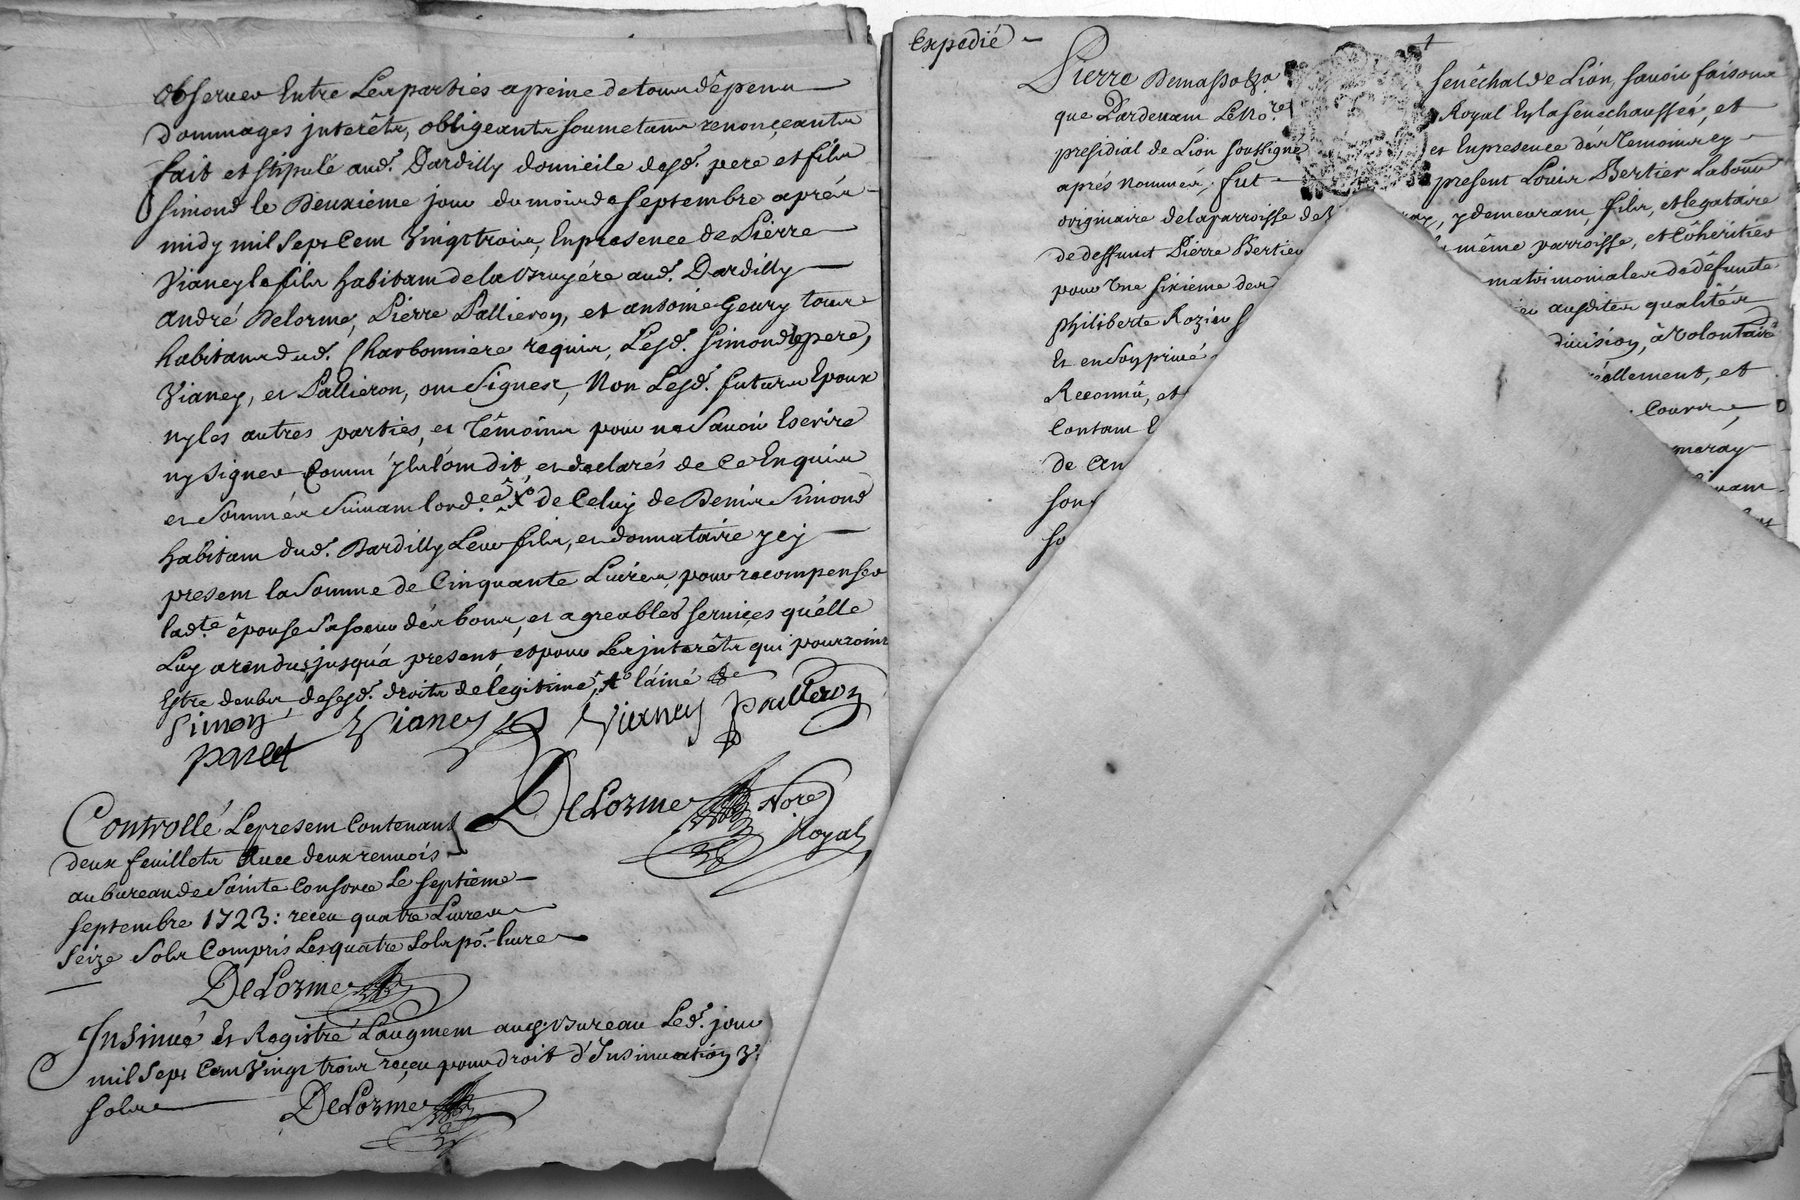 observer Entre Les parties a peine de tous dêpens
dommages jnterêts, obligeants soumetans renonçeants
fait et stipulé aud. Dardilly domicile desd. pere et fils
simond le Deuxiéme jour du mois de septembre aprés
midy mil sept Cent Vingt trois, En presence de Pierre
Vianey le fils habitant de la Bruyére aud. Dardilly
andré Delorme, Pierre Pallieron, et antoine Geury tous
habitans dud. Charbonniere requis, Lesd. simond le pere,
Vianey, et Pallieron, ont signes, Non Lesd. futurs Epoux
ny les autres parties, et têmoins pour ne savoir Escrire
ny signer Comm' jls l'ont dit, et declarés de Ce Enquis
et sommés suivant lord.ce de Celuy de Denis Simond
habitant dud. Dardilly Leur fils, et donnataire yey
present la Somme de Cinquante Livres, pour recompenser
lad.te épouse sa soeur dés bons, et agreables services qu'elle
Luy a rendus jusqu'a present, et pour Les jnterêts qui pourroint
Estre deubs desesd. droits de légitime, l'ainé de
Simon Vianey Vianey Pailleron
Controllé Le present Contenant
DeLorme Nore
Royal
deux feuillets Avec deux renvois
au bureau de Sainte Consorce Le septiéme
septembre 1723: receu quatre Livres
seize Sols Compris Les quatre sols po. livre
DeLorme
Insinué Et Registré L'augment aud. Bureau Led. jour
mil Sept Cent Vingt trois reçeu pour droit d'Insinuation
sols
DeLorme
Expedié
Pierre Demasso senéchal de Lion, savoir faisons
que Pardevant Le No.re Royal En la senechaussée, et
presidial de Lion soussigné et En presence dés Temoins ey
aprés Nommés. fut present Louis Bertier Labour
originaire de la parroisse de y demeurant, fils, et legataire
de deffunt Pierre Bertier même parroisse, et Côheritier
pour Une sixiéme des matrimoniales de défunte
philiberte Rozier ausdites qualités
Et en son privé division, à Volontaire
Reconnu, et réellement, et
Contant
de